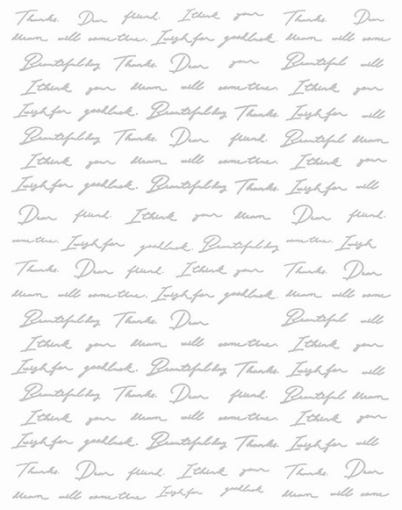 Thanks. Dear friend. I think your Thanks. Dear
dream will come true. I wish for good luck. dream will come
Beautiful day Thanks. Dear your Beautiful will
I think your dream will come true. I think your
I wish for good luck. Beautiful day Thanks. I wish for will
Beautiful day Thanks. Dear friend. Beautiful dream
I think your dream will come true. I think your
I wish for good luck. Beautiful day Thanks. I wish for will
Dear friend. I think your dream Dear friend.
come true. I wish for good luck. Beautiful day come true. I wish
Thanks. Dear friend. I think your Thanks. Dear
dream will come true. I wish for good luck. dream will come
Beautiful day Thanks. Dear Beautiful will
I think your dream will come true. I think your
I wish for good luck. Beautiful day Thanks. I wish for will
Beautiful day Thanks. Dear friend. Beautiful dream
I think your dream will come true. I think your
I wish for good luck. Beautiful day Thanks. I wish for will
Thanks. Dear friend. I think your Thanks. Dear
dream will come true I wish for good luck dream will come